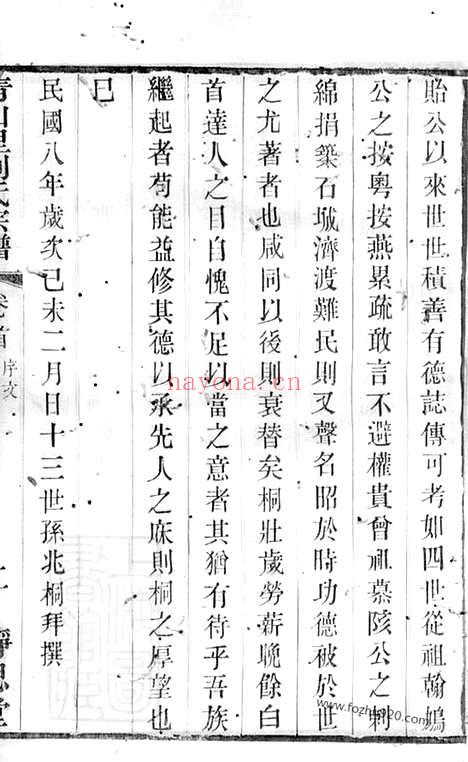 貽公以來世世積善有德誌傳可考如四世從祖翰鴆
公之按粵按燕累疏敢言不避權貴曾祖慕陔公之剌
綿捐築石城濟渡難民則又聲名昭於時功德被於世
之尤著者也咸同以後則衰替矣桐壯歲勞薪晚餘白
首達人之目自愧不足以當之意者其猶有待乎吾族
繼起者苟能益修其德以承先人之庥則桐之厚望也
巳
民國八年歲次己未二月日十三世孫兆桐拜撰
宗譜
卷首
序文
思堂
nayona.cn
www.fozhu920.com